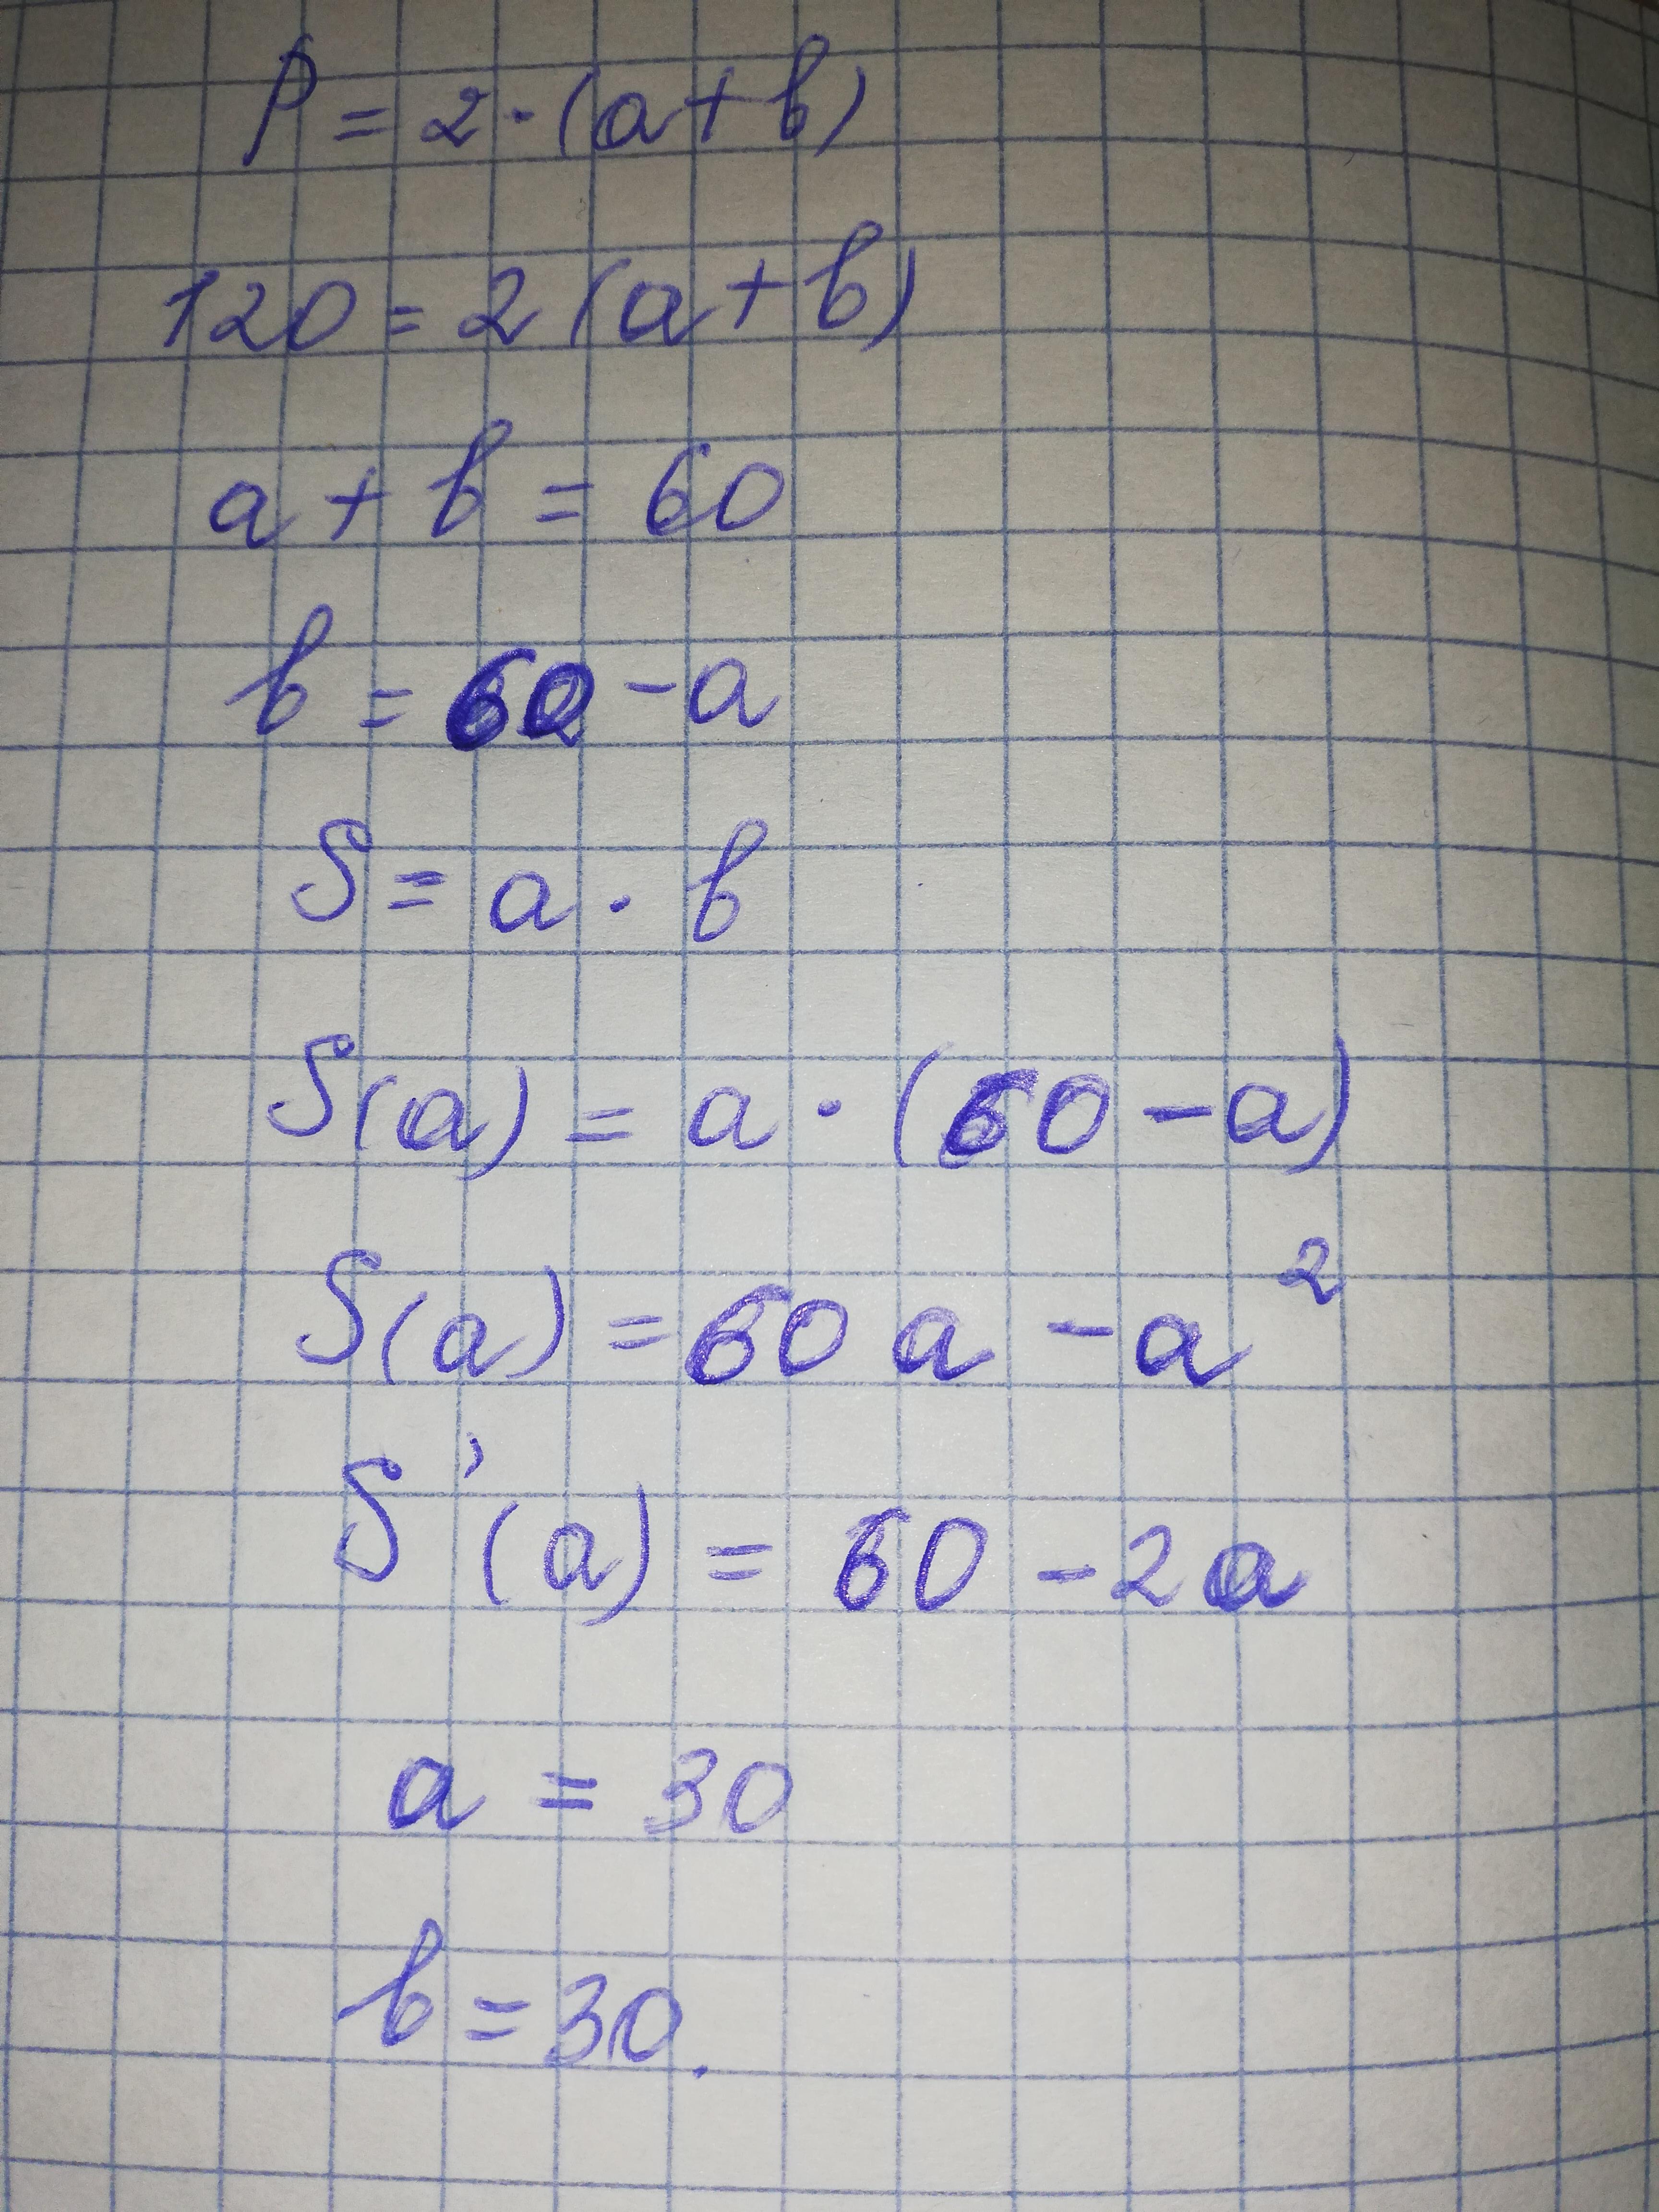 P = 2 · (a + b)
120 = 2 (a + b)
a + b = 60
b = 60 - a
S = a · b
S(a) = a · (60 - a)
S(a) = 60a - a²
S'(a) = 60 - 2a
a = 30
b = 30.